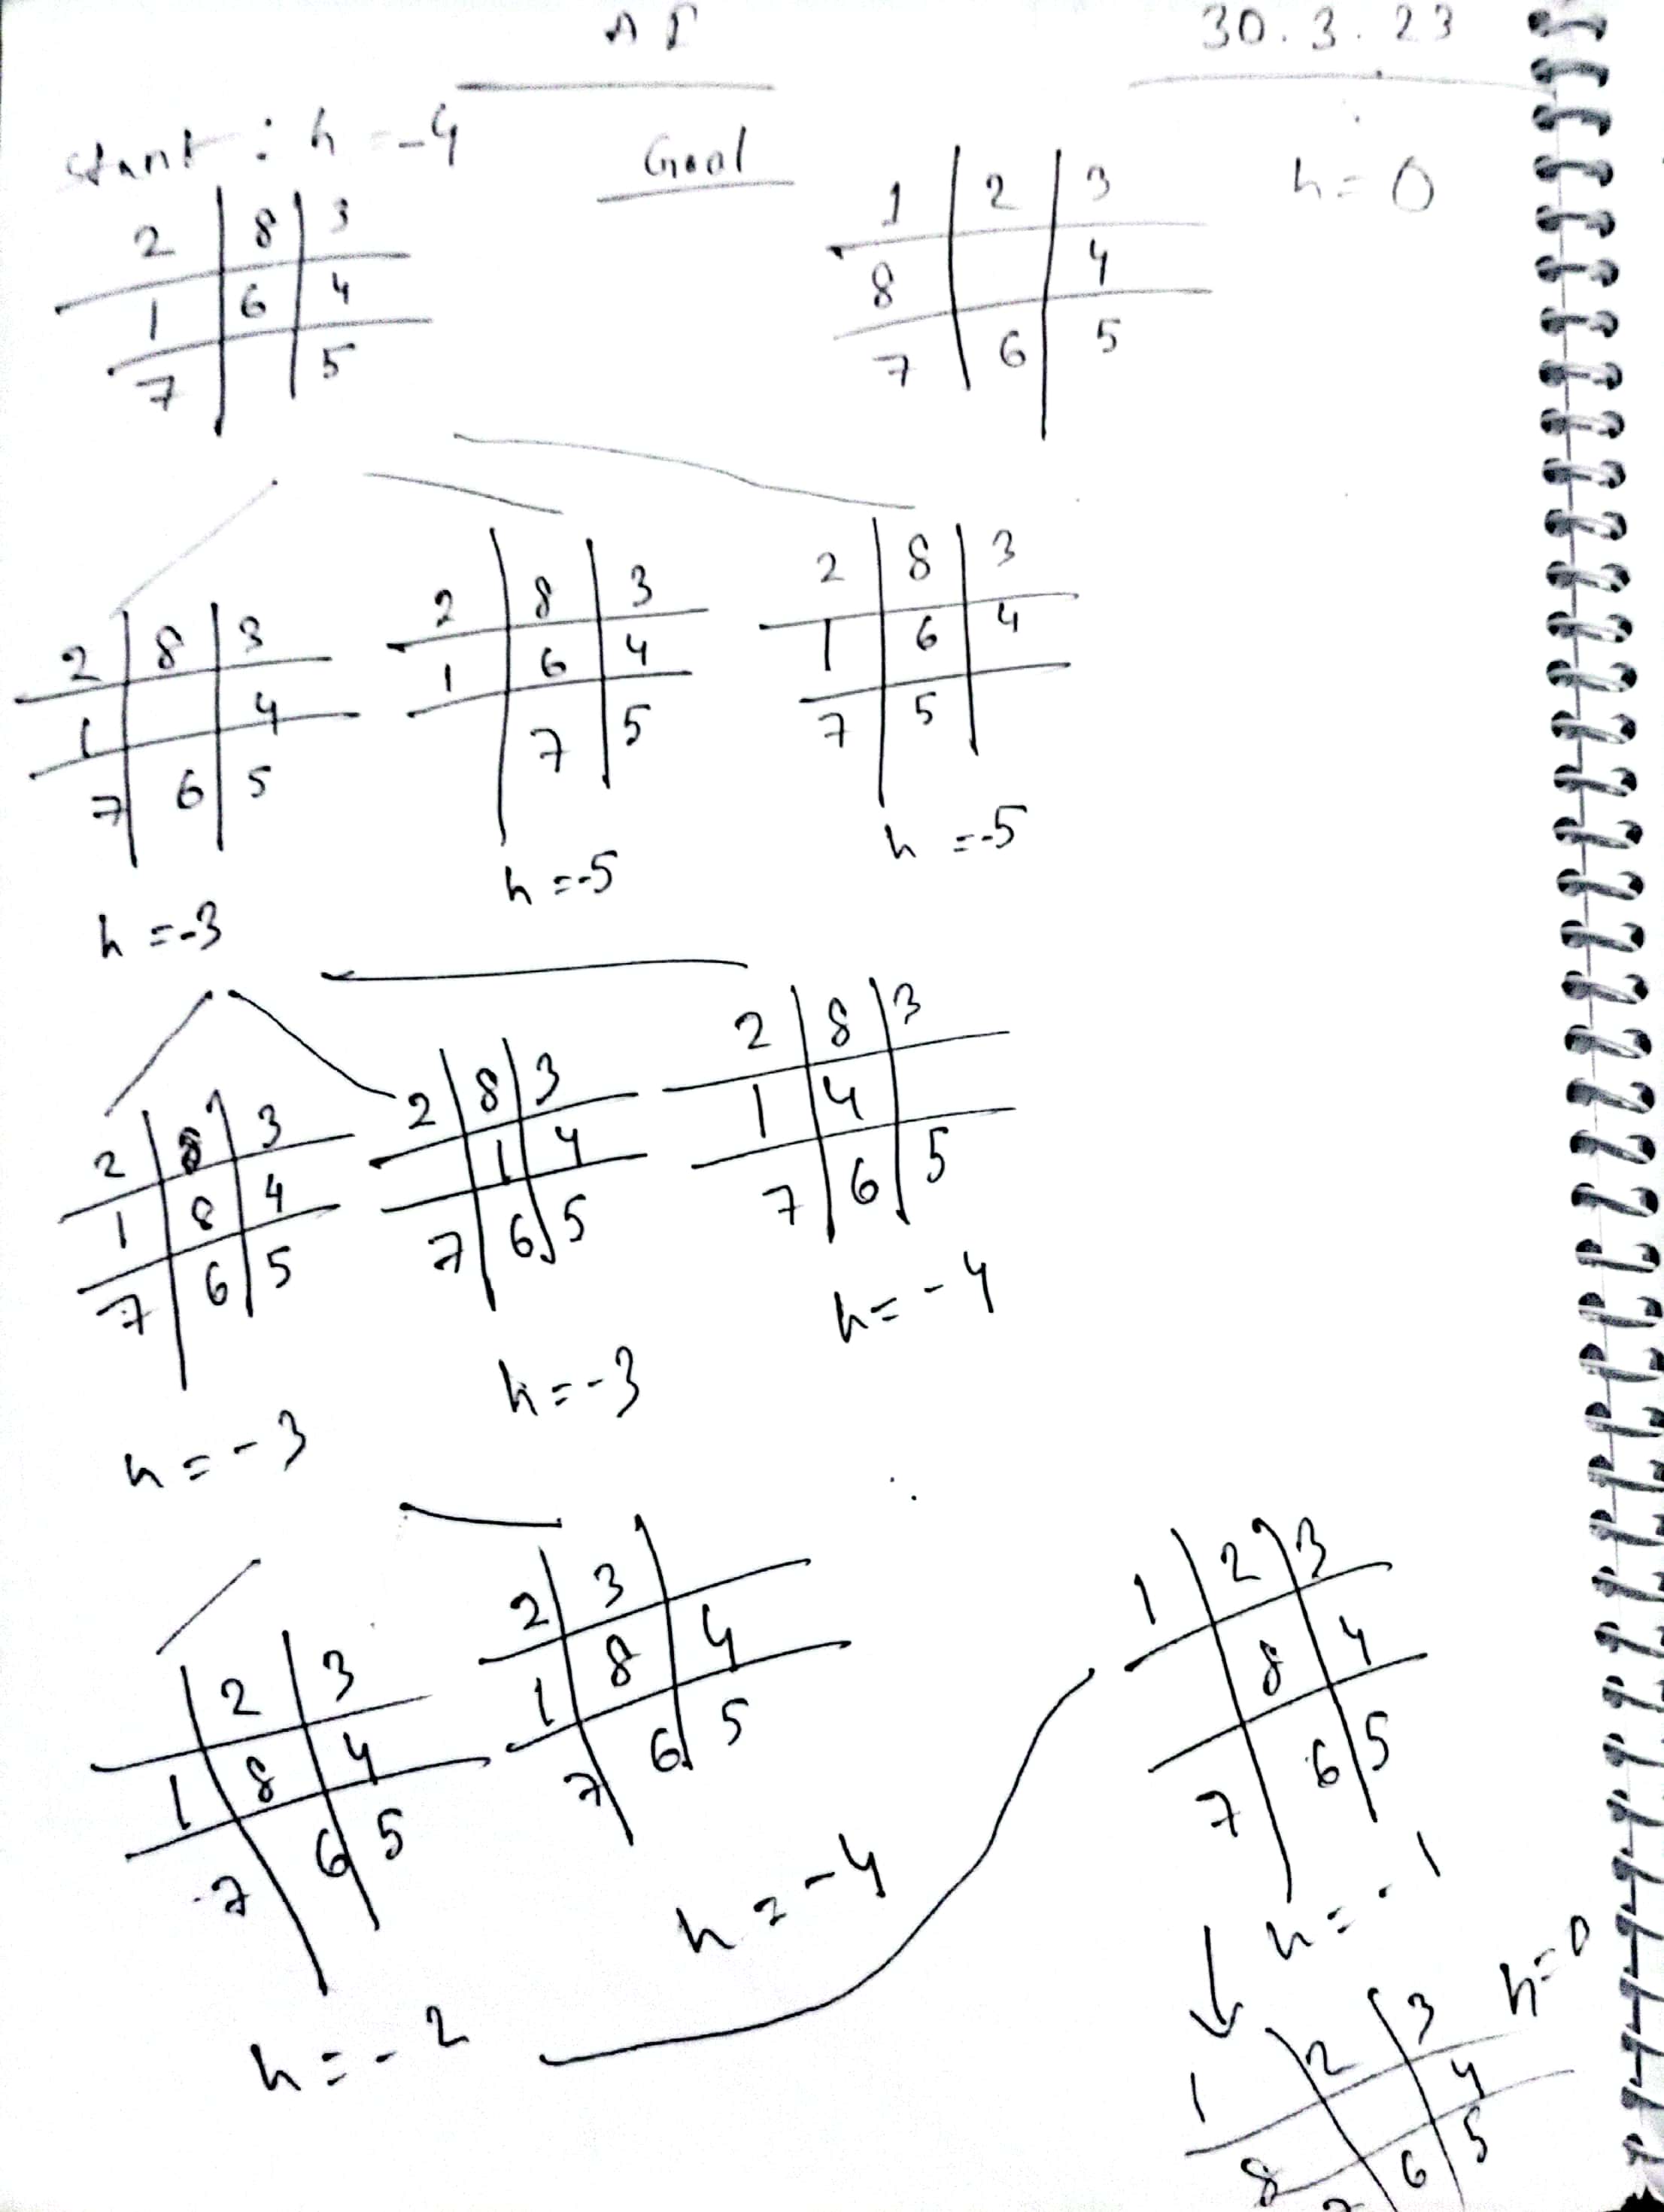 AI 30.3.23
start : h = -4 Goal h = 0
2 8 3
1 6 4
7 5
1 2 3
8 4
7 6 5
2 8 3
1 4
7 6 5
h = -3
2 8 3
1 6 4
7 5
h = -5
2 8 3
1 6 4
7 5
h = -5
2 3
1 8 4
7 6 5
h = -3
2 8 3
1 4
7 6 5
h = -3
2 8 3
1 4
7 6 5
h = -4
2 3
1 8 4
7 6 5
h = -2
2 3
1 8 4
7 6 5
h = -4
1 2 3
8 4
7 6 5
h = -1
h = 0
1 2 3
8 4
7 6 5